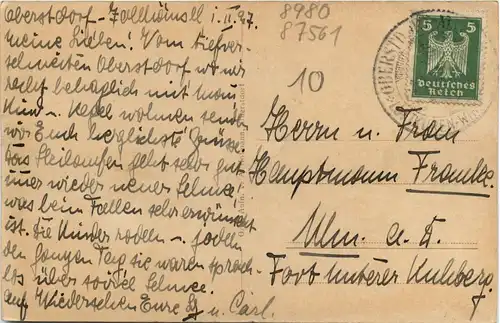 Oberstdorf - 1.II.27.
meine Lieben! Vom tiefver-
schneiten Oberstdorf wo wir
recht behaglich mit
Kind u. Kegel wohnen senden
wir Euch herzlichste Grüsse.
Das Skilaufen geht sehr gut
immer wieder neuer Schnee
was beim Fallen sehr erwünscht
ist. Die Kinder rodeln u. jodeln
den ganzen Tag sie waren sprach-
los über soviel Schnee.
Auf Wiedersehen Eure u. Carl.
8980
87561
10
5 5
Deutsches
Reich
OBERSTDORF
Herrn u. Frau
Hauptmann Franke.
Ulm a. D.
Fort Unterer Kuhberg.